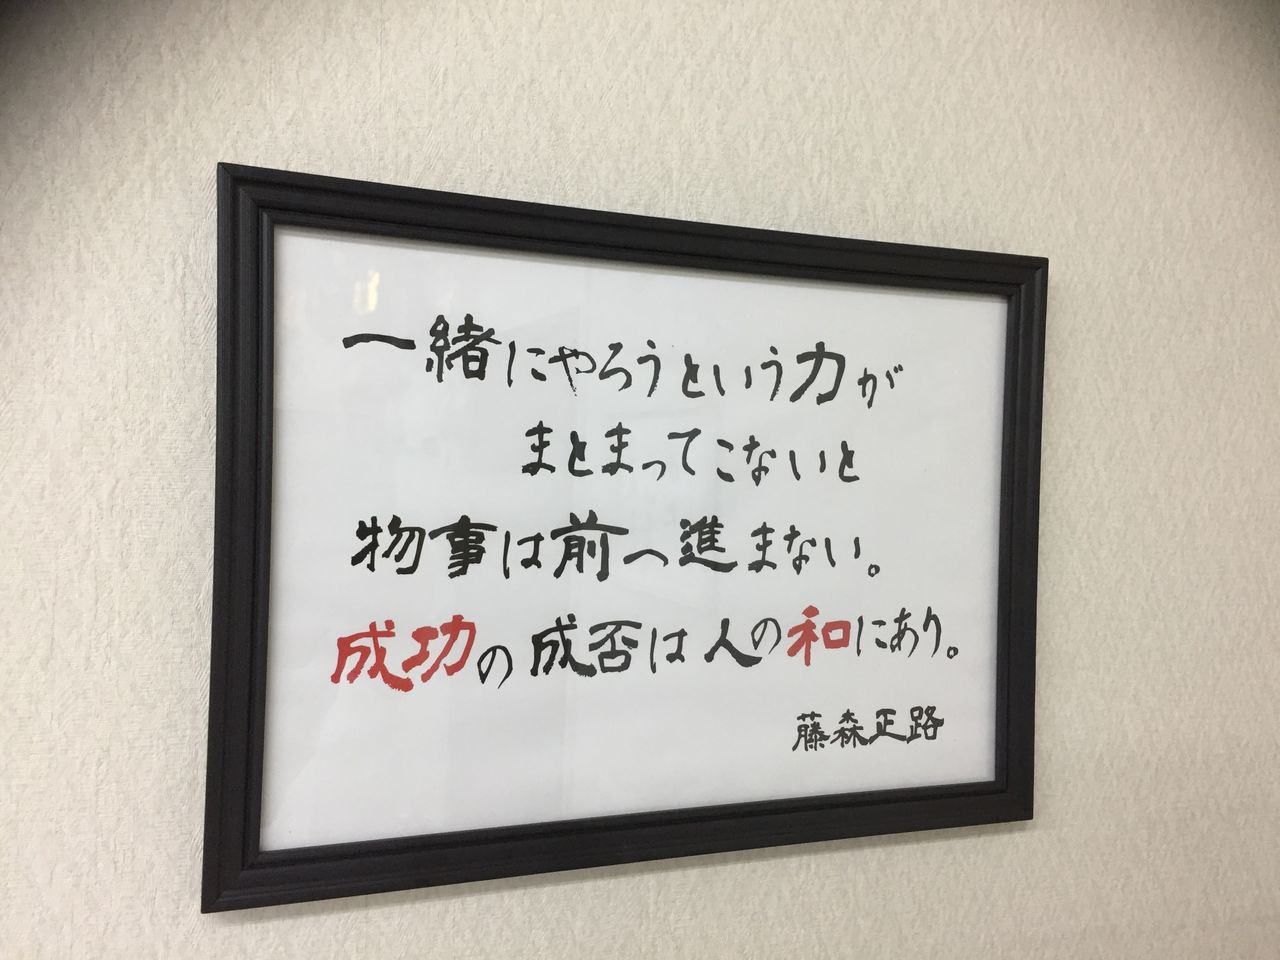 一緒にやろうという力が
まとまってこないと
物事は前へ進まない。
成功の成否は人の和にあり。
藤森正路